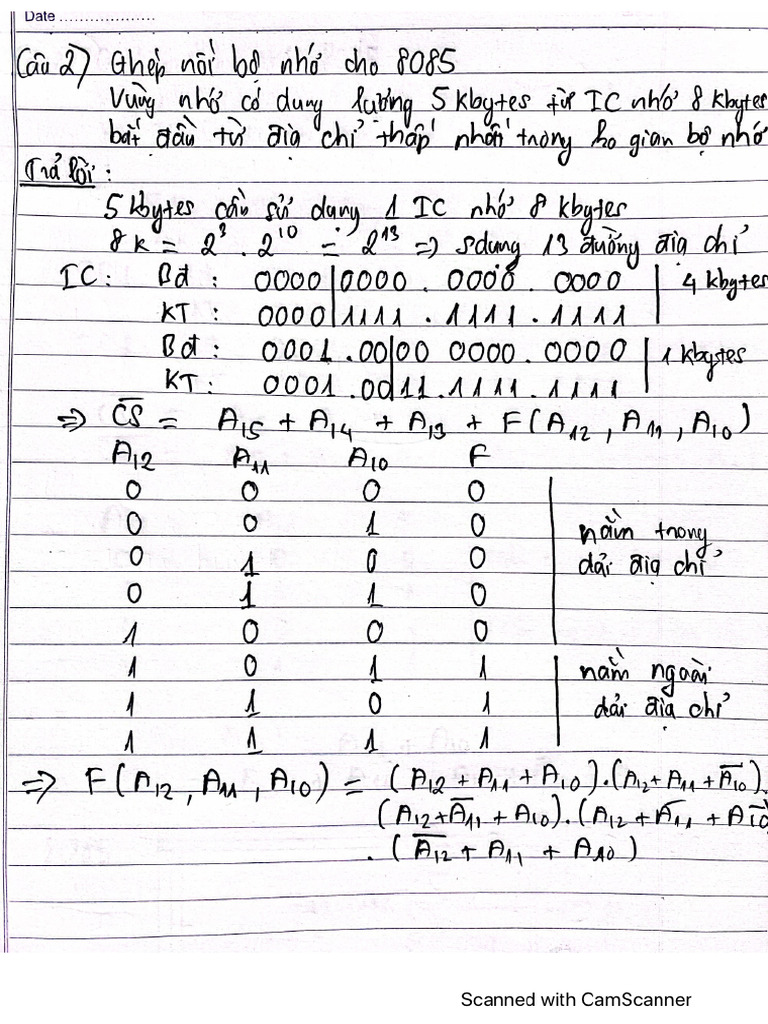 Date ....................
Câu 2) Ghép nối bộ nhớ cho 8085
Vùng nhớ có dung lượng 5 kbytes từ IC nhớ 8 kbytes
bắt đầu từ địa chỉ thấp nhất trong ko gian bộ nhớ
Trả lời :
5 kbytes cần sử dụng 1 IC nhớ 8 kbytes
8 K = 2³ . 2¹⁰ = 2¹³ => sdụng 13 đường địa chỉ
IC : Bđ : 0000 | 0000 . 0000 . 0000 | 4 kbytes
KT : 0000 | 1111 . 1111 . 1111
Bđ : 0001 . 00 | 00 0000 . 0000 | 1 kbytes
KT : 0001 . 00 | 11 . 1111 . 1111
=> C̅S̅ = A₁₅ + A₁₄ + A₁₃ + F(A₁₂ , A₁₁ , A₁₀)
A₁₂ A₁₁ A₁₀ F
0 0 0 0
0 0 1 0 nằm trong
0 1 0 0 dải địa chỉ
0 1 1 0
1 0 0 0
1 0 1 1 nằm ngoài
1 1 0 1 dải địa chỉ
1 1 1 1
=> F(A₁₂ , A₁₁ , A₁₀) = (A₁₂ + A₁₁ + A₁₀) . (A₁₂ + A₁₁ + A̅₁₀) .
(A₁₂ + A̅₁₁ + A₁₀) . (A₁₂ + A̅₁₁ + A̅₁₀)
. (A̅₁₂ + A₁₁ + A₁₀)
Scanned with CamScanner